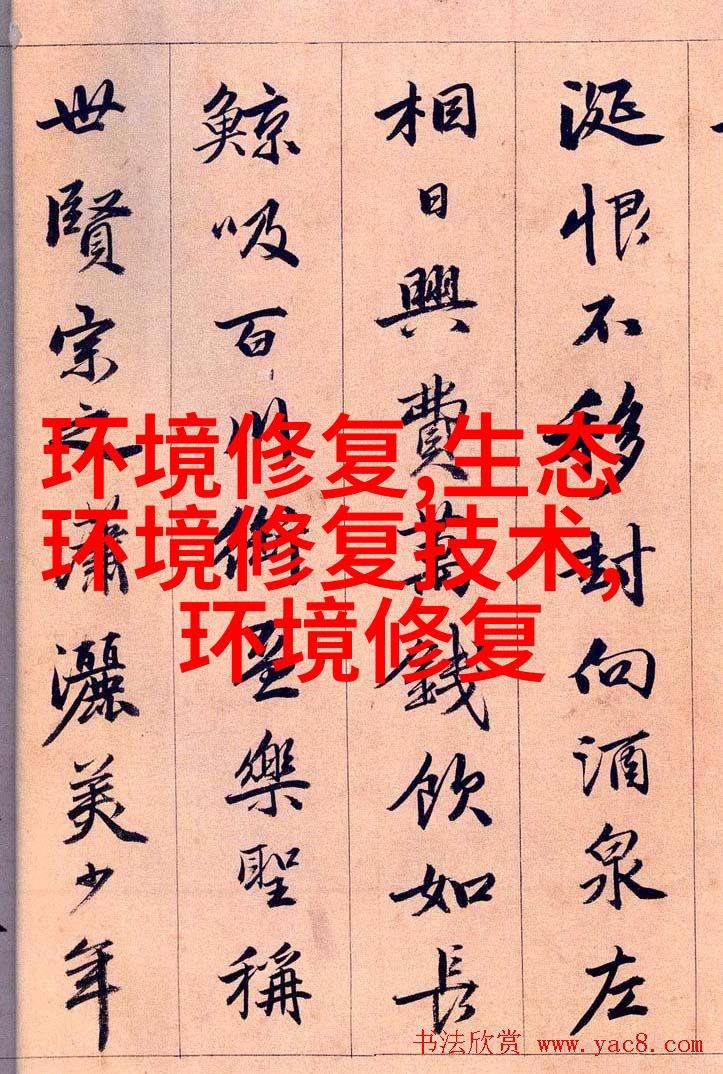 涎恨不移封向酒泉左
相日興費萬錢飲如長
鯨吸百川銜盃樂聖稱
世賢宗之瀟灑美少年
环境修复,生态
环境修复技术,
环境修复
书法欣赏 www.yac8.com